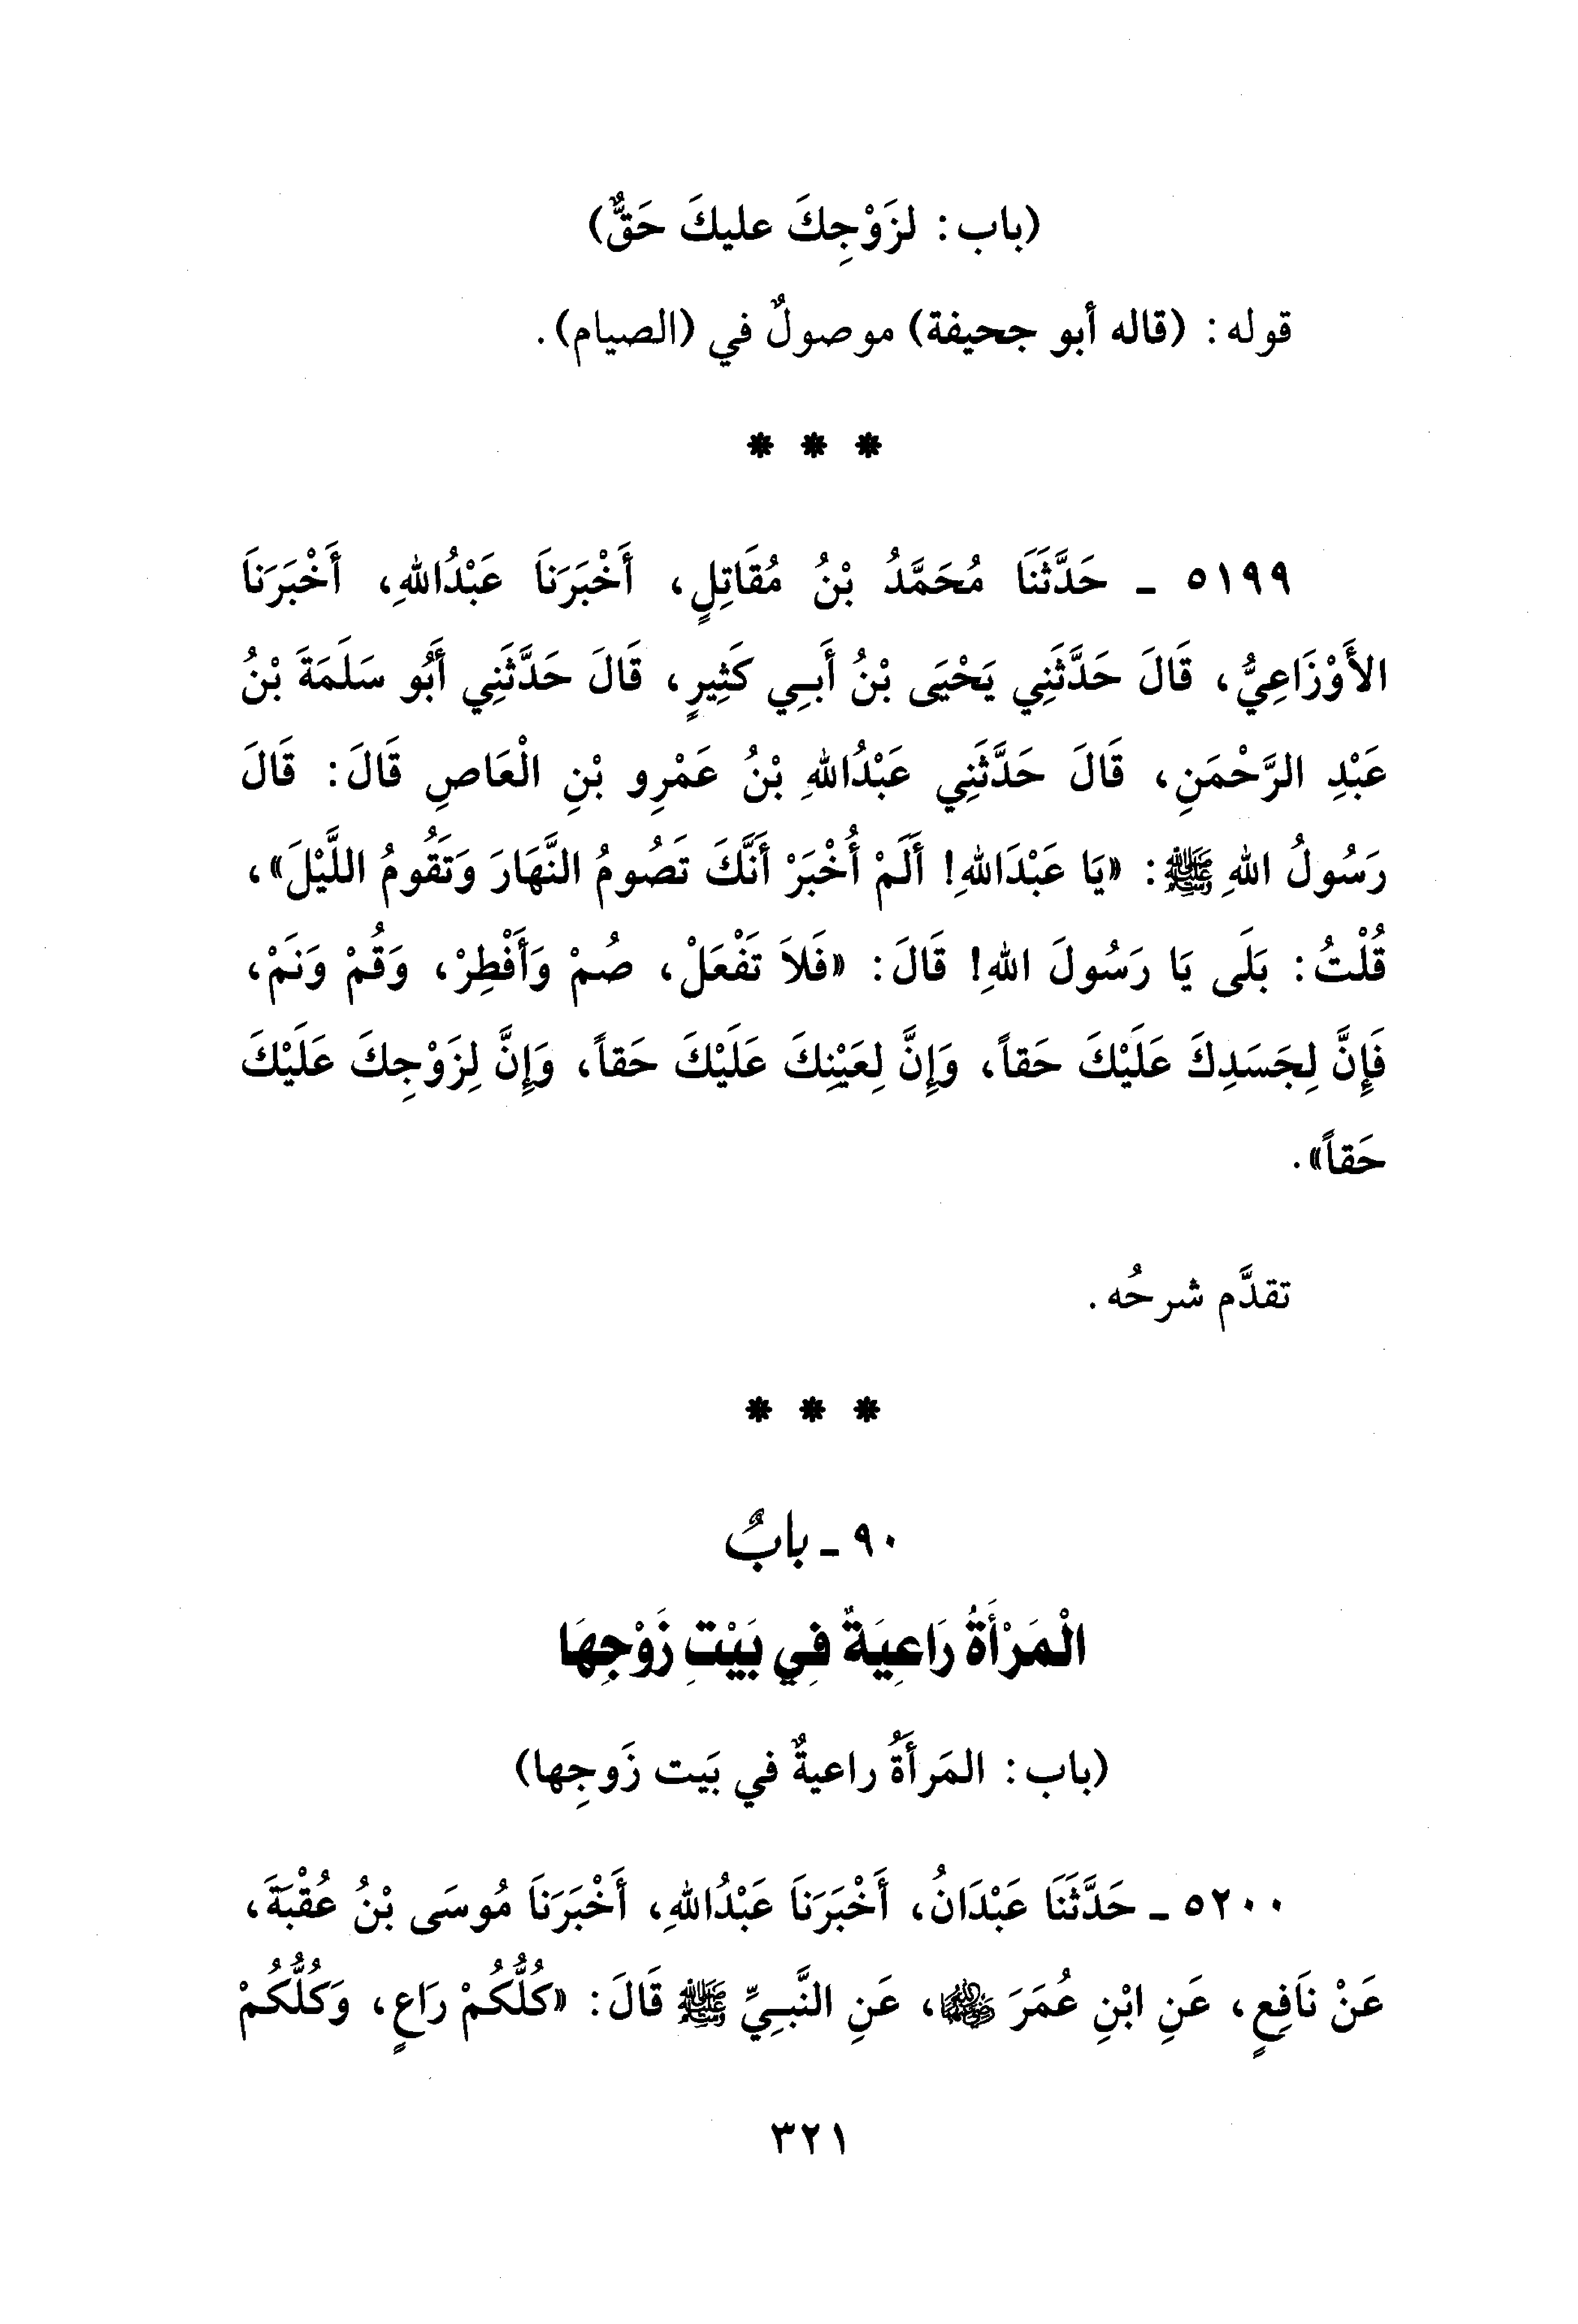 (باب: لزَوْجِكَ عليكَ حَقٌّ)
قوله: (قاله أبو جحيفة) موصولٌ في (الصيام).
* * *
٥١٩٩ ـ حَدَّثَنَا مُحَمَّدُ بْنُ مُقَاتِلٍ، أَخْبَرَنَا عَبْدُاللهِ، أَخْبَرَنَا
الأَوْزَاعِيُّ، قَالَ حَدَّثَنِي يَحْيَى بْنُ أَبِي كَثِيرٍ، قَالَ حَدَّثَنِي أَبُو سَلَمَةَ بْنُ
عَبْدِ الرَّحْمَنِ، قَالَ حَدَّثَنِي عَبْدُاللهِ بْنُ عَمْرِو بْنِ الْعَاصِ قَالَ: قَالَ
رَسُولُ اللهِ ﷺ: «يَا عَبْدَاللهِ! أَلَمْ أُخْبَرْ أَنَّكَ تَصُومُ النَّهَارَ وَتَقُومُ اللَّيْلَ»،
قُلْتُ: بَلَى يَا رَسُولَ اللهِ! قَالَ: «فَلاَ تَفْعَلْ، صُمْ وَأَفْطِرْ، وَقُمْ وَنَمْ،
فَإِنَّ لِجَسَدِكَ عَلَيْكَ حَقاً، وَإِنَّ لِعَيْنِكَ عَلَيْكَ حَقاً، وَإِنَّ لِزَوْجِكَ عَلَيْكَ
حَقاً».
تقدَّم شرحُه.
* * *
٩٠ ـ بابٌ
الْمَرْأَةُ رَاعِيَةٌ فِي بَيْتِ زَوْجِهَا
(باب: المَرأَةُ راعيةٌ في بَيت زَوجِها)
٥٢٠٠ ـ حَدَّثَنَا عَبْدَانُ، أَخْبَرَنَا عَبْدُاللهِ، أَخْبَرَنَا مُوسَى بْنُ عُقْبَةَ،
عَنْ نَافِعٍ، عَنِ ابْنِ عُمَرَ رضي الله عنهما، عَنِ النَّبِيِّ ﷺ قَالَ: «كُلُّكُمْ رَاعٍ، وَكُلُّكُمْ
٣٢١